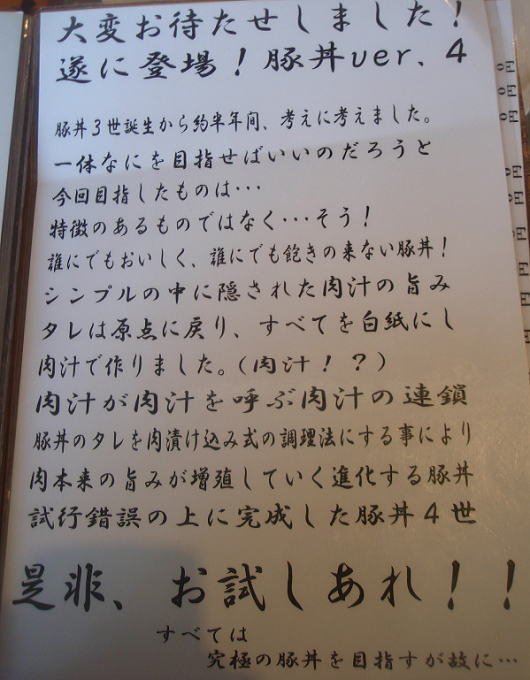 大変お待たせしました！
遂に登場！豚丼ver、4
豚丼3世誕生から約半年間、考えに考えました。
一体なにを目指せばいいのだろうと
今回目指したものは・・・
特徴のあるものではなく・・・そう！
誰にでもおいしく、誰にでも飽きの来ない豚丼！
シンプルの中に隠された肉汁の旨み
タレは原点に戻り、すべてを白紙にし
肉汁で作りました。(肉汁！？)
肉汁が肉汁を呼ぶ肉汁の連鎖
豚丼のタレを肉漬け込み式の調理法にする事により
肉本来の旨みが増殖していく進化する豚丼
試行錯誤の上に完成した豚丼4世
是非、お試しあれ！！
すべては
究極の豚丼を目指すが故に…